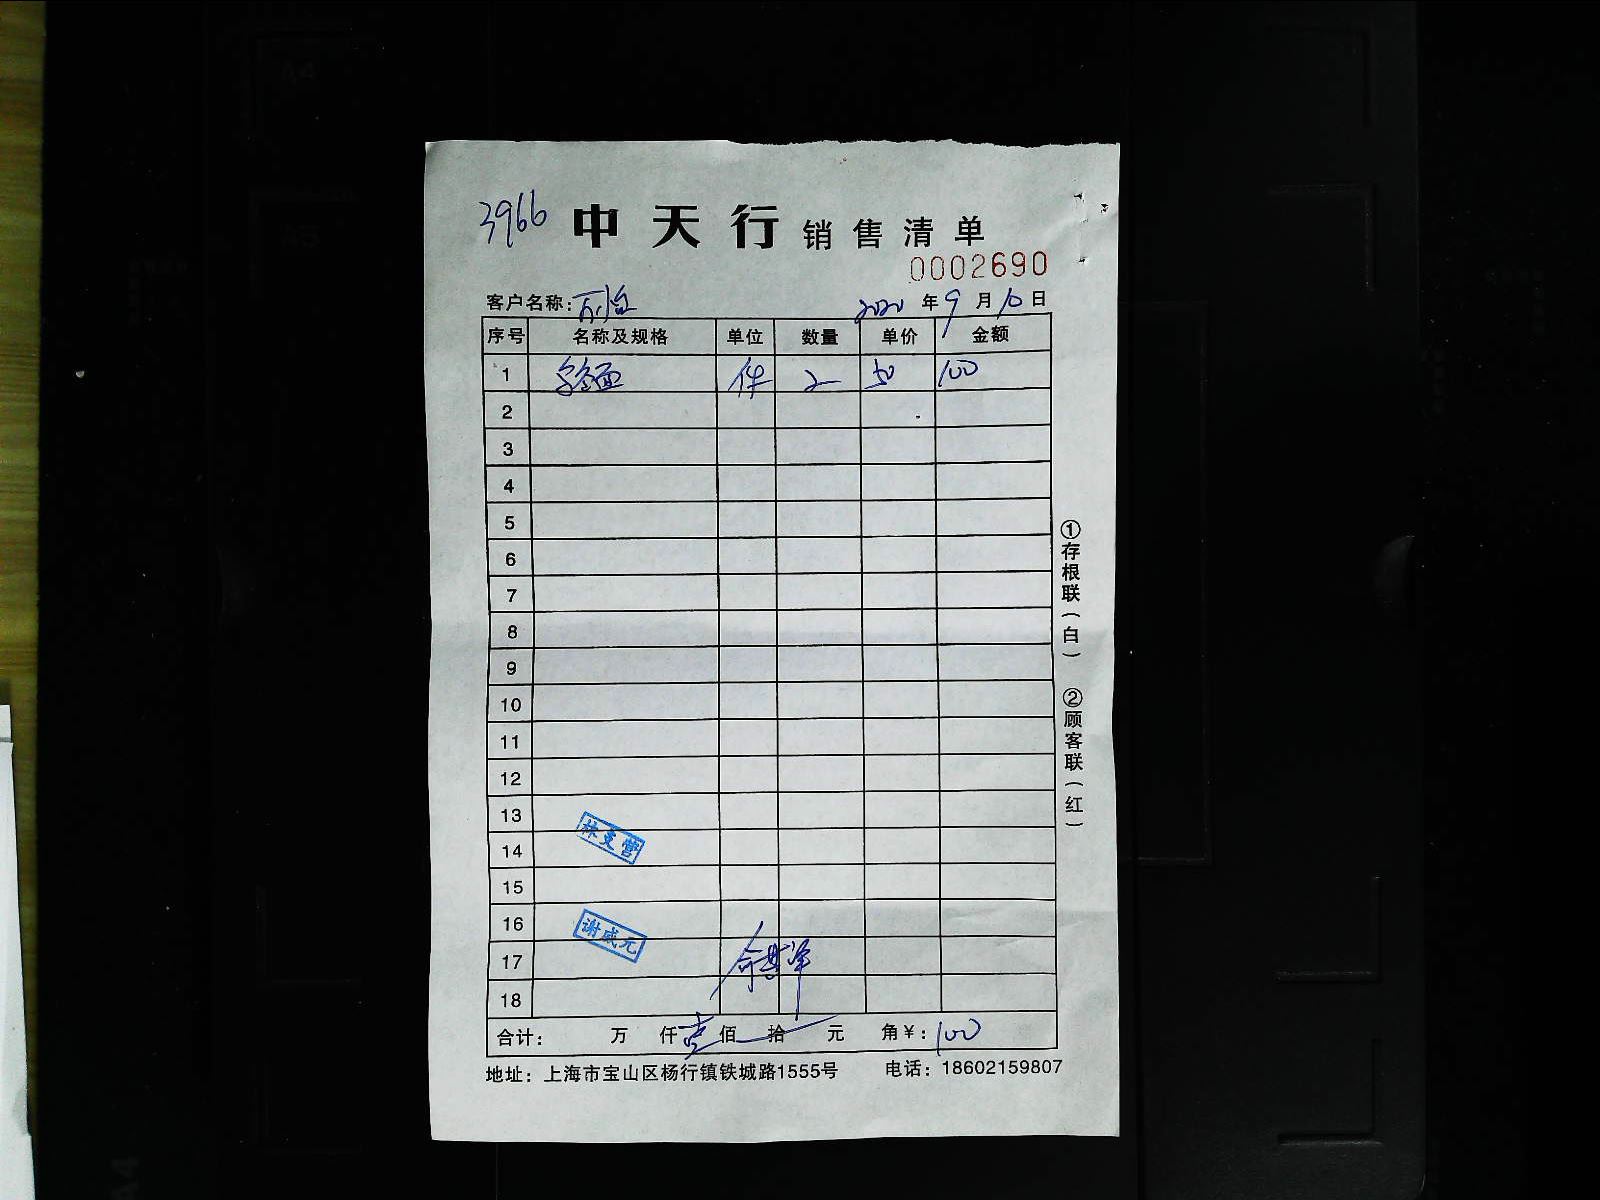 3966 中天行 销售清单
0002690
客户名称: 2020 年 9 月 10 日
序号 名称及规格 单位 数量 单价 金额
1 件 2 50 100
2
3
4
5
6
7
8
9
10
11
12
13
14
15
16
17
18
合计: 万 仟 壹 佰 拾 元 角 ¥: 100
地址: 上海市宝山区杨行镇铁城路1555号 电话: 18602159807
①存根联(白) ②顾客联(红)
谢成元